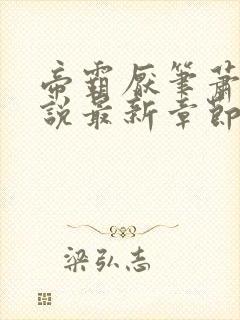 帝霸厌笔萧
说最新章節
梁弘志